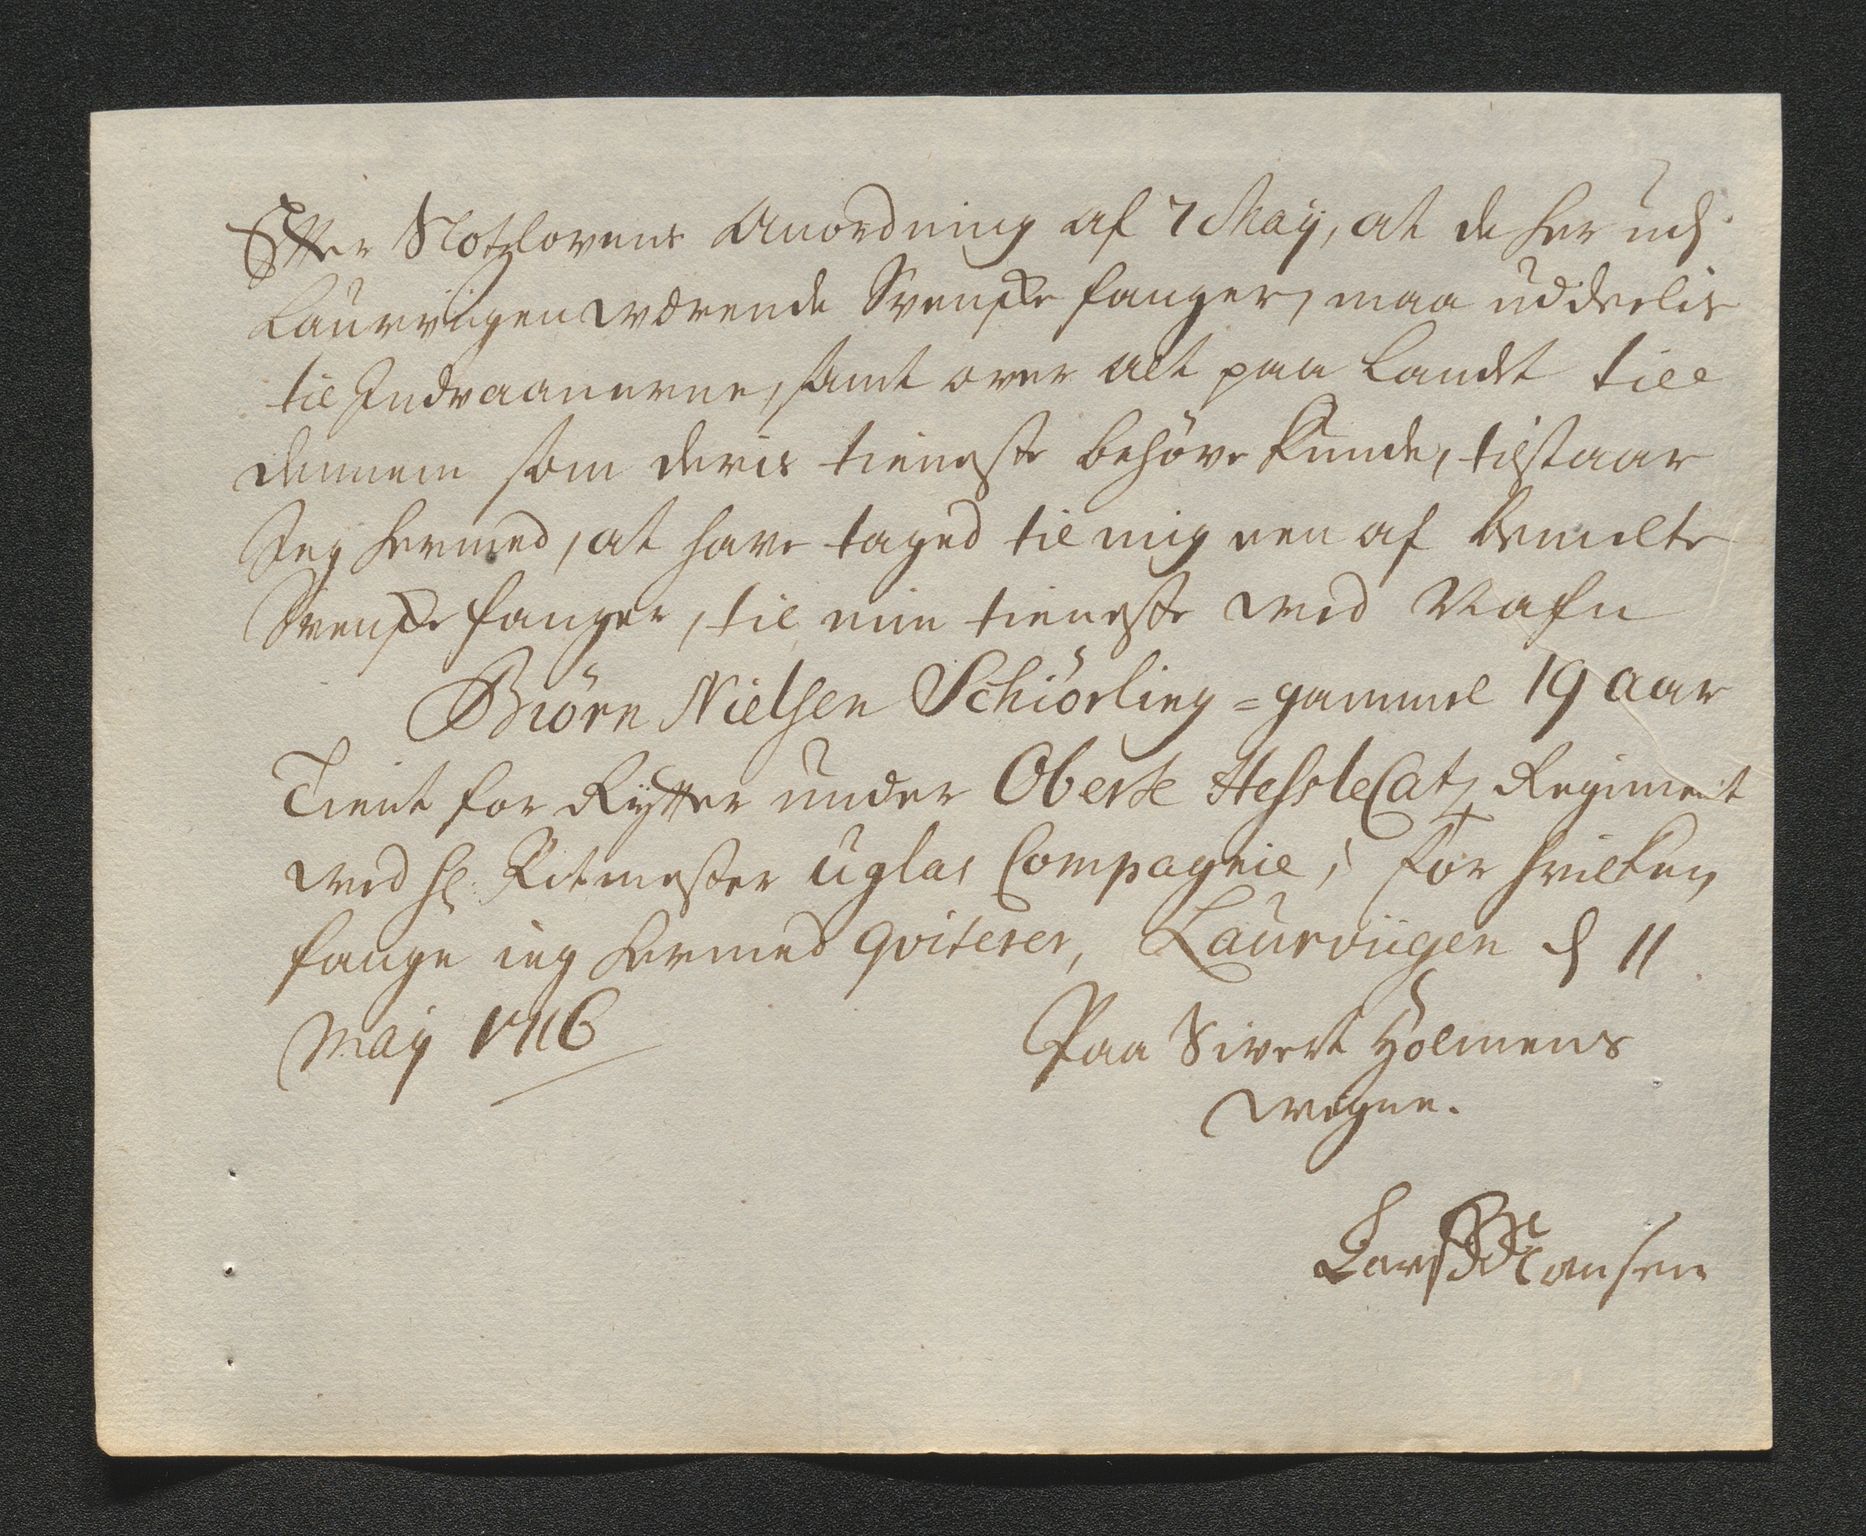 Efter Slotzlovens Anordning af 7 Maij, at de her udj
Laurviigen værende Svenske fanger, maa uddeelis
til Indvaanerne, samt over alt paa Landet till
dennem som deris tieneste behöve kunde, tilstaar
Jeg hermed, at have taged til mig een af bemelte
Svenske fanger, til min tieneste ved Nafn
Biörn Nielsen Schiörling = gammel 19 aar
Tient for Rytter under Oberste HessleCatz Regiment
ved hl: Ritmester Uglas Compagnie, for hvilken
fange ieg hermed qviterer, Laurviigen d 11
Maij 1716
Paa Sivert Holmens
vegne.
Lars Hansen